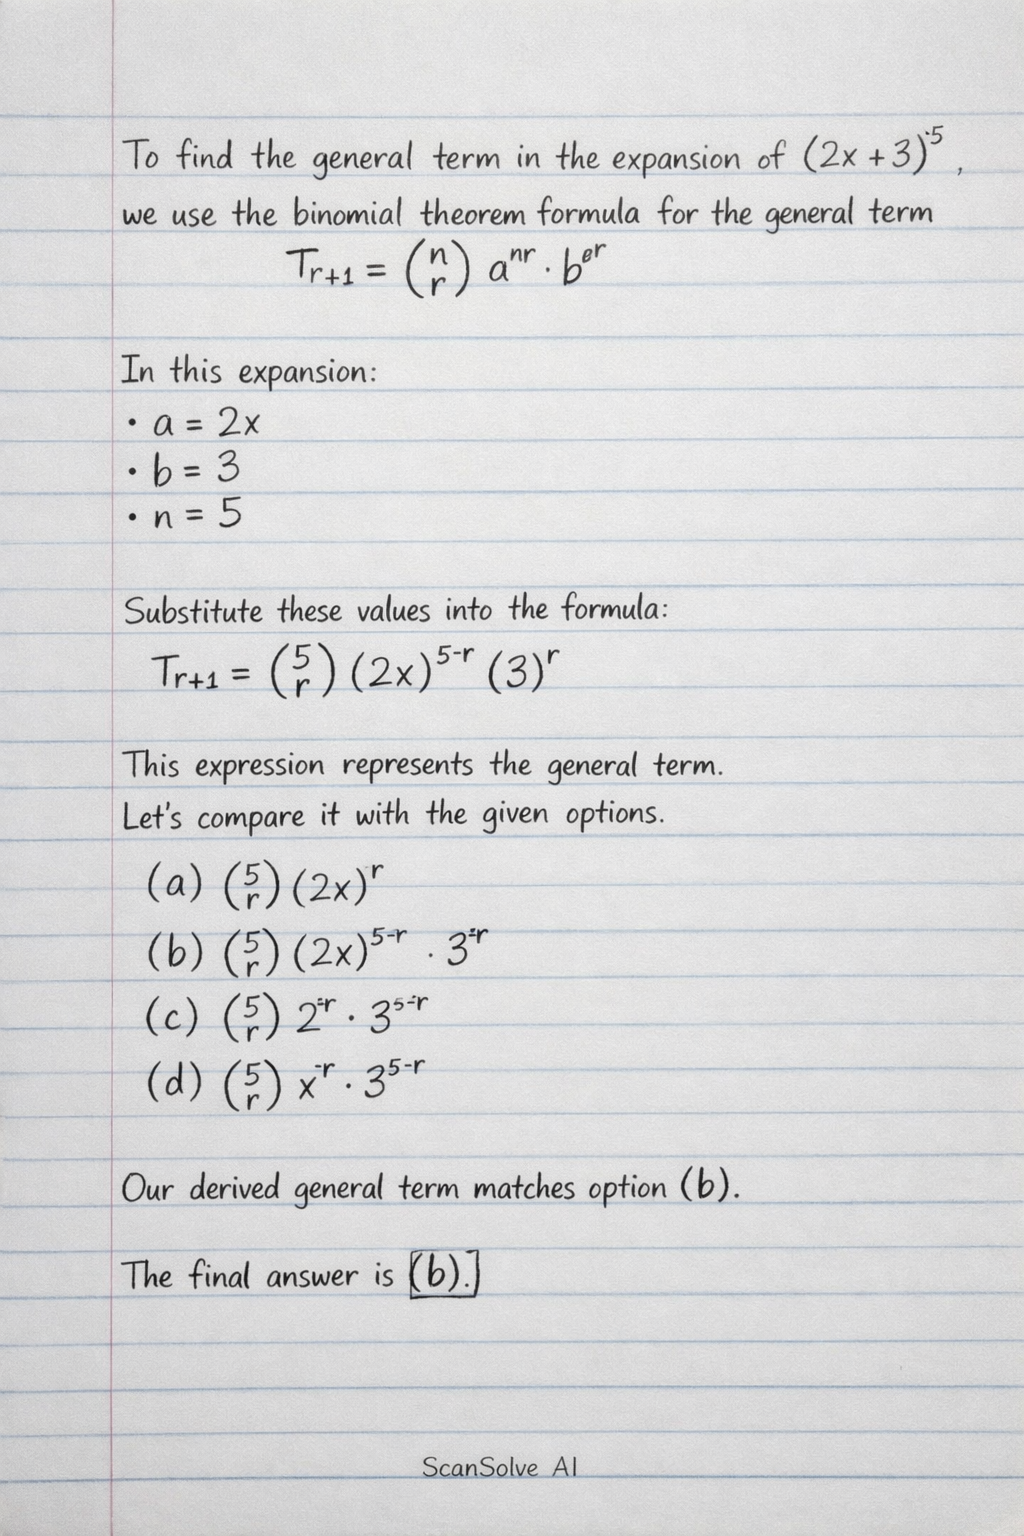 To find the general term in the expansion of (2x + 3)^5,
we use the binomial theorem formula for the general term
T_{r+1} = (n r) a^{nr} · b^{er}
In this expansion:
• a = 2x
• b = 3
• n = 5
Substitute these values into the formula:
T_{r+1} = (5 r) (2x)^{5-r} (3)^r
This expression represents the general term.
Let's compare it with the given options.
(a) (5 r) (2x)^r
(b) (5 r) (2x)^{5-r} · 3^{=r}
(c) (5 r) 2^{=r} · 3^{5-r}
(d) (5 r) x^{-r} · 3^{5-r}
Our derived general term matches option (b).
The final answer is [(b).]
ScanSolve AI